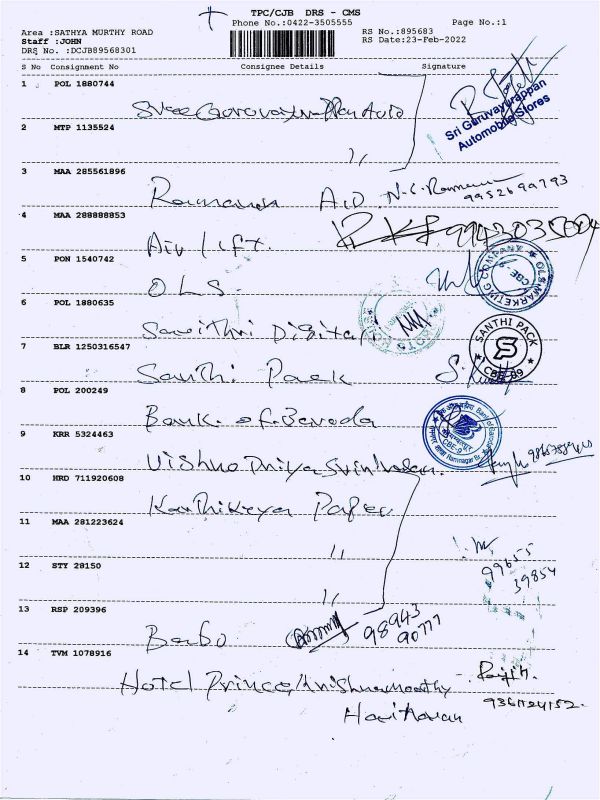 TPC/CJB DRS - CMS
Phone No.:0422-3505555
Page No.:1
Area :SATHYA MURTHY ROAD
RS No.:895683
Staff :JOHN
RS Date:23-Feb-2022
DRS No. :DCJB89568301
S No Consignment No Consignee Details Signature
1 POL 1880744
Sri Guruvayurappan
Automobile Stores
2 MTP 1135524
〃
3 MAA 285561896
Ramananda
9952699793
4 MAA 288888853
Air lift.
5 PON 1540742
OLS
OLSI MARKETING COMPANY
CBE-9
6 POL 1880635
Savithri Digital
7 BLR 1250316547
Santhi Pack
SANTHI PACK
CBE-09
8 POL 200249
Bank of Baroda
Bank of Baroda
CBE-9
Ramnagar Br.
9 KRR 5324463
Vishnu Priya Srinivasan.
10 HRD 711920608
Karthikeya Paper
11 MAA 281223624
〃
99655
39854
12 STY 28150
〃
13 RSP 209396
98943
90777
14 TVM 1078916
Hotel Prince/Krishnamoorthy